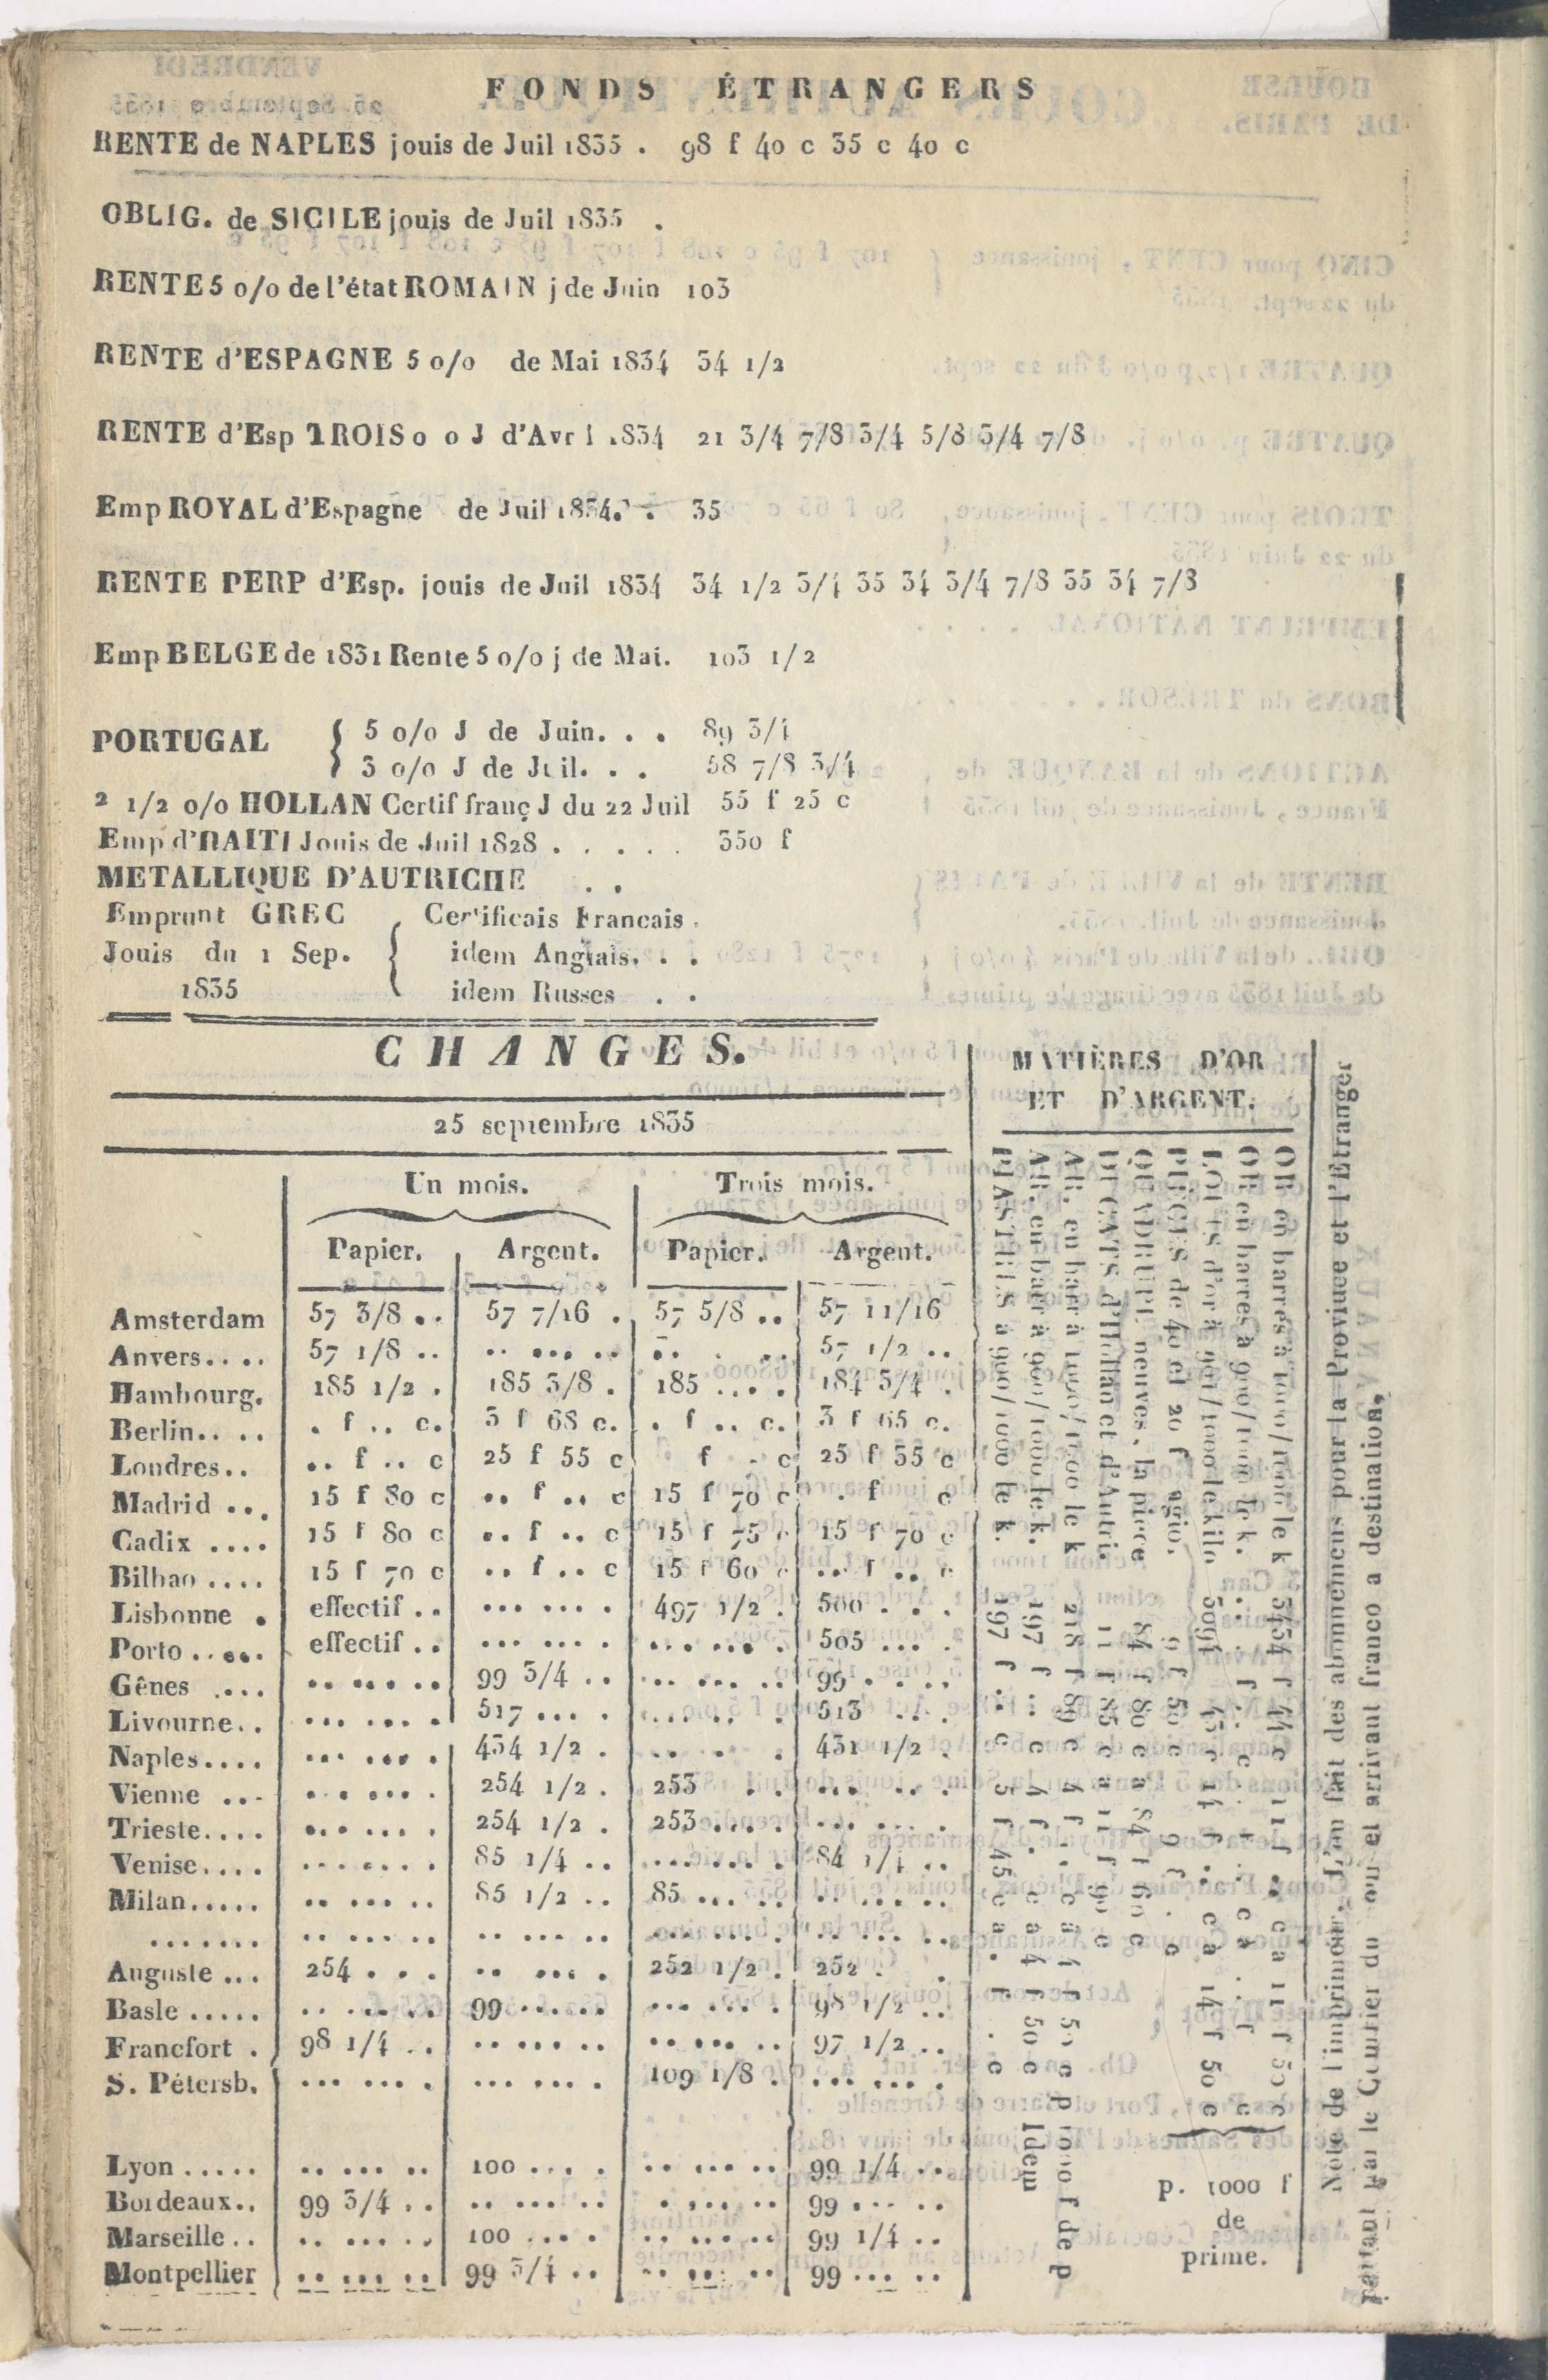 FONDS ÉTRANGERS
RENTE de NAPLES jouis de Juil 1835 . 98 f 40 c 35 c 40 c
OBLIG. de SICILE jouis de Juil 1835 .
RENTE 5 o/o de l'état ROMAIN j de Juin 103
RENTE d'ESPAGNE 5 o/o de Mai 1834 34 1/2
RENTE d'Esp TROIS o o J d'Avri l 1834 21 3/4 7/8 3/4 5/8 3/4 7/8
Emp ROYAL d'Espagne de Juil 1834. . 35
RENTE PERP d'Esp. jouis de Juil 1834 34 1/2 3/4 35 34 3/4 7/8 35 34 7/8
Emp BELGE de 1831 Rente 5 o/o j de Mai. 103 1/2
PORTUGAL { 5 o/o J de Juin. . . 89 3/4
3 o/o J de Juil. . . 58 7/8 3/4
2 1/2 o/o HOLLAN Certif franç J du 22 Juil 55 f 25 c
Emp d'HAITI Jouis de Juil 1828 . . . . . 350 f
METALLIQUE D'AUTRICHE . .
Emprunt GREC { Certificais Francais .
Jouis du 1 Sep. idem Anglais. . .
1835 idem Russes . .
CHANGES.
25 septembre 1835
Un mois. Trois mois.
Papier. Argent. Papier. Argent.
Amsterdam 57 3/8 .. 57 7/16 . 57 5/8 .. 57 11/16
Anvers.... 57 1/8 .. .. ... .. .. . .. 57 1/2 ..
Hambourg. 185 1/2 . 185 3/8 . 185 .... 184 3/4 .
Berlin.... . f .. c. 3 f 68 c. . f .. c. 3 f 65 c.
Londres.. .. f .. c 25 f 55 c f . c 25 f 35 c
Madrid ... 15 f 80 c .. f .. c 15 f 70 c . f c
Cadix .... 15 f 80 c .. f .. c 15 f 75 c 15 f 70 c
Bilbao .... 15 f 70 c .. f .. c 15 f 60 c .. f .. c
Lisbonne . effectif .. ... ... . 497 1/2 . 500 . . .
Porto ..... effectif .. ... ... . ... ... . 505 ... .
Gênes .... .. ... .. 99 3/4 .. .. ... .. 99 . . ..
Livourne.. ... ... . 517 ... . ... ... . 513 ... .
Naples.... ... ... . 434 1/2 . ... . . 431 1/2 .
Vienne ... .. ... . 254 1/2 . 253 . . ... .. .
Trieste.... ... ... . 254 1/2 . 253 .... ... ... .
Venise.... ... ... . 85 1/4 .. ... ... . 84 1/4 ..
Milan..... .. ... .. 85 1/2 .. 85 ... .. .. ... ..
....... .. ... .. .. ... .. ... ... . .. ... ..
Auguste ... 254 . . . .. ... . 252 1/2 . 252 . .
Basle ..... .. ... .. 99 ... .. ... ... . 98 1/2 ..
Francfort . 98 1/4 .. .. ... .. .. ... .. 97 1/2 ..
S. Pétersb. ... ... . ... ... . 109 1/8 . ... ... .
Lyon ..... .. ... .. 100 ... . .. ... .. 99 1/4 ..
Bordeaux.. 99 3/4 .. .. ... .. . ... .. 99 ... ..
Marseille .. .. ... .. 100 ... . .. ... .. 99 1/4 ..
Montpellier .. ... .. 99 3/4 .. .. ... .. 99 ... ..
MATIÈRES D'OR
ET D'ARGENT.
OR en barres à 1000/1000 le k 3434 f 44 c 11 f . c a 11 f 50 c
OR en barres à 900/1000 le k. . . . f . . c . f . c a . f c
LOUIS d'or à 901/1000 le kilo 3094 45 c 14 f . . c a 14 f 50 c
PIÈCES de 40 et 20 f agio. 9 f 50 c 9 f . c
QUADRUPL neuves, la pièce 84 f 80 c a 84 f 60 c
DUCATS d'Hollan et d'Autri. 11 f 85 c a 11 f 90 c
AR. en barr à 1000/1000 le k 218 f 89 c 4 f . c a 4 f 50 c p 1000 f de p
AR. en barr à 900/1000 le k. 197 f . . c 4 f . c a 4 f 50 c Idem
PIASTRES à 900/1000 le k. 197 f . . c 5 f 45 c a . f . c
p. 1000 f
de
prime.
Note de l'imprimeur. L'on fait des abonnemens pour la Province et l'Etranger
partant par le Courier du jour et arrivant franco a destination,